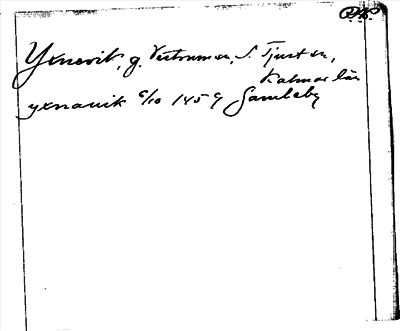 Yxnevik, g. Vestrumsn, S. Tjust sn,
Kalmar län
yxnauik 6/10 1459 Gamleby